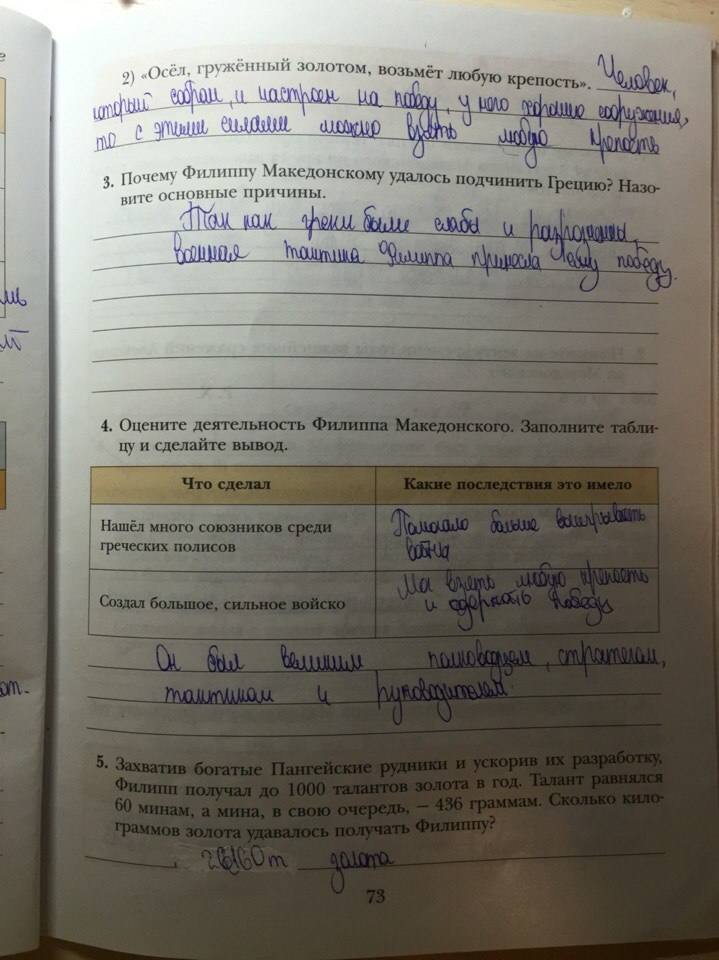 2) «Осёл, гружённый золотом, возьмёт любую крепость». Человек,
который собран, и настроен на победу, у него хорошие сооружения,
то с этими силами можно взять любую крепость
3. Почему Филиппу Македонскому удалось подчинить Грецию? Назо-
вите основные причины.
Так как греки были слабы и разрознены,
военная тактика Филиппа принесла ему победу.
4. Оцените деятельность Филиппа Македонского. Заполните табли-
цу и сделайте вывод.
Что сделал
Какие последствия это имело
Нашёл много союзников среди
греческих полисов
Помогало больше выигрывать
войны
Создал большое, сильное войско
Мог взять любую крепость
и одержать победу
Он был великим полководцем, стратегом,
тактиком и руководителем.
5. Захватив богатые Пангейские рудники и ускорив их разработку,
Филипп получал до 1000 талантов золота в год. Талант равнялся
60 минам, а мина, в свою очередь, — 436 граммам. Сколько кило-
граммов золота удавалось получать Филиппу?
золота
73